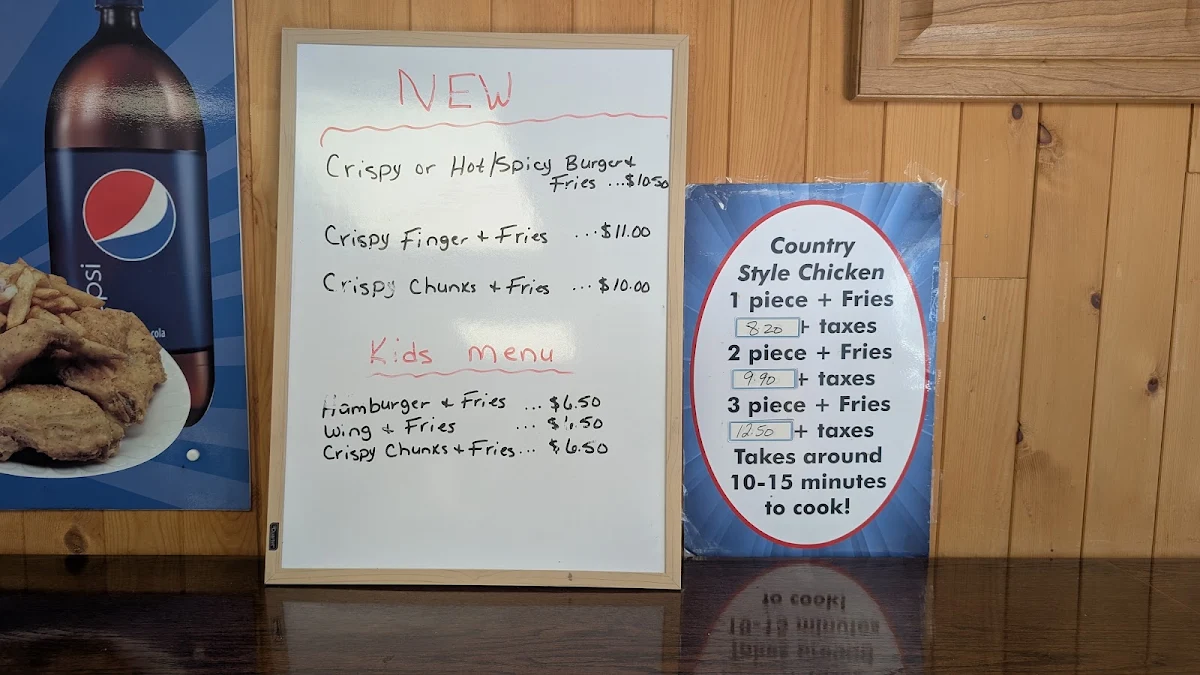 NEW
Crispy or Hot/Spicy Burger +
Fries ...$10.50
Crispy Finger + Fries ...$11.00
Crispy Chunks + Fries ...$10.00
Kids menu
Hamburger + Fries ... $6.50
Wing + Fries ...
Crispy Chunks + Fries... $6.50
Country
Style Chicken
1 piece + Fries
8.20 + taxes
2 piece + Fries
9.90 + taxes
3 piece + Fries
12.50 + taxes
Takes around
10-15 minutes
to cook!
psi
cola